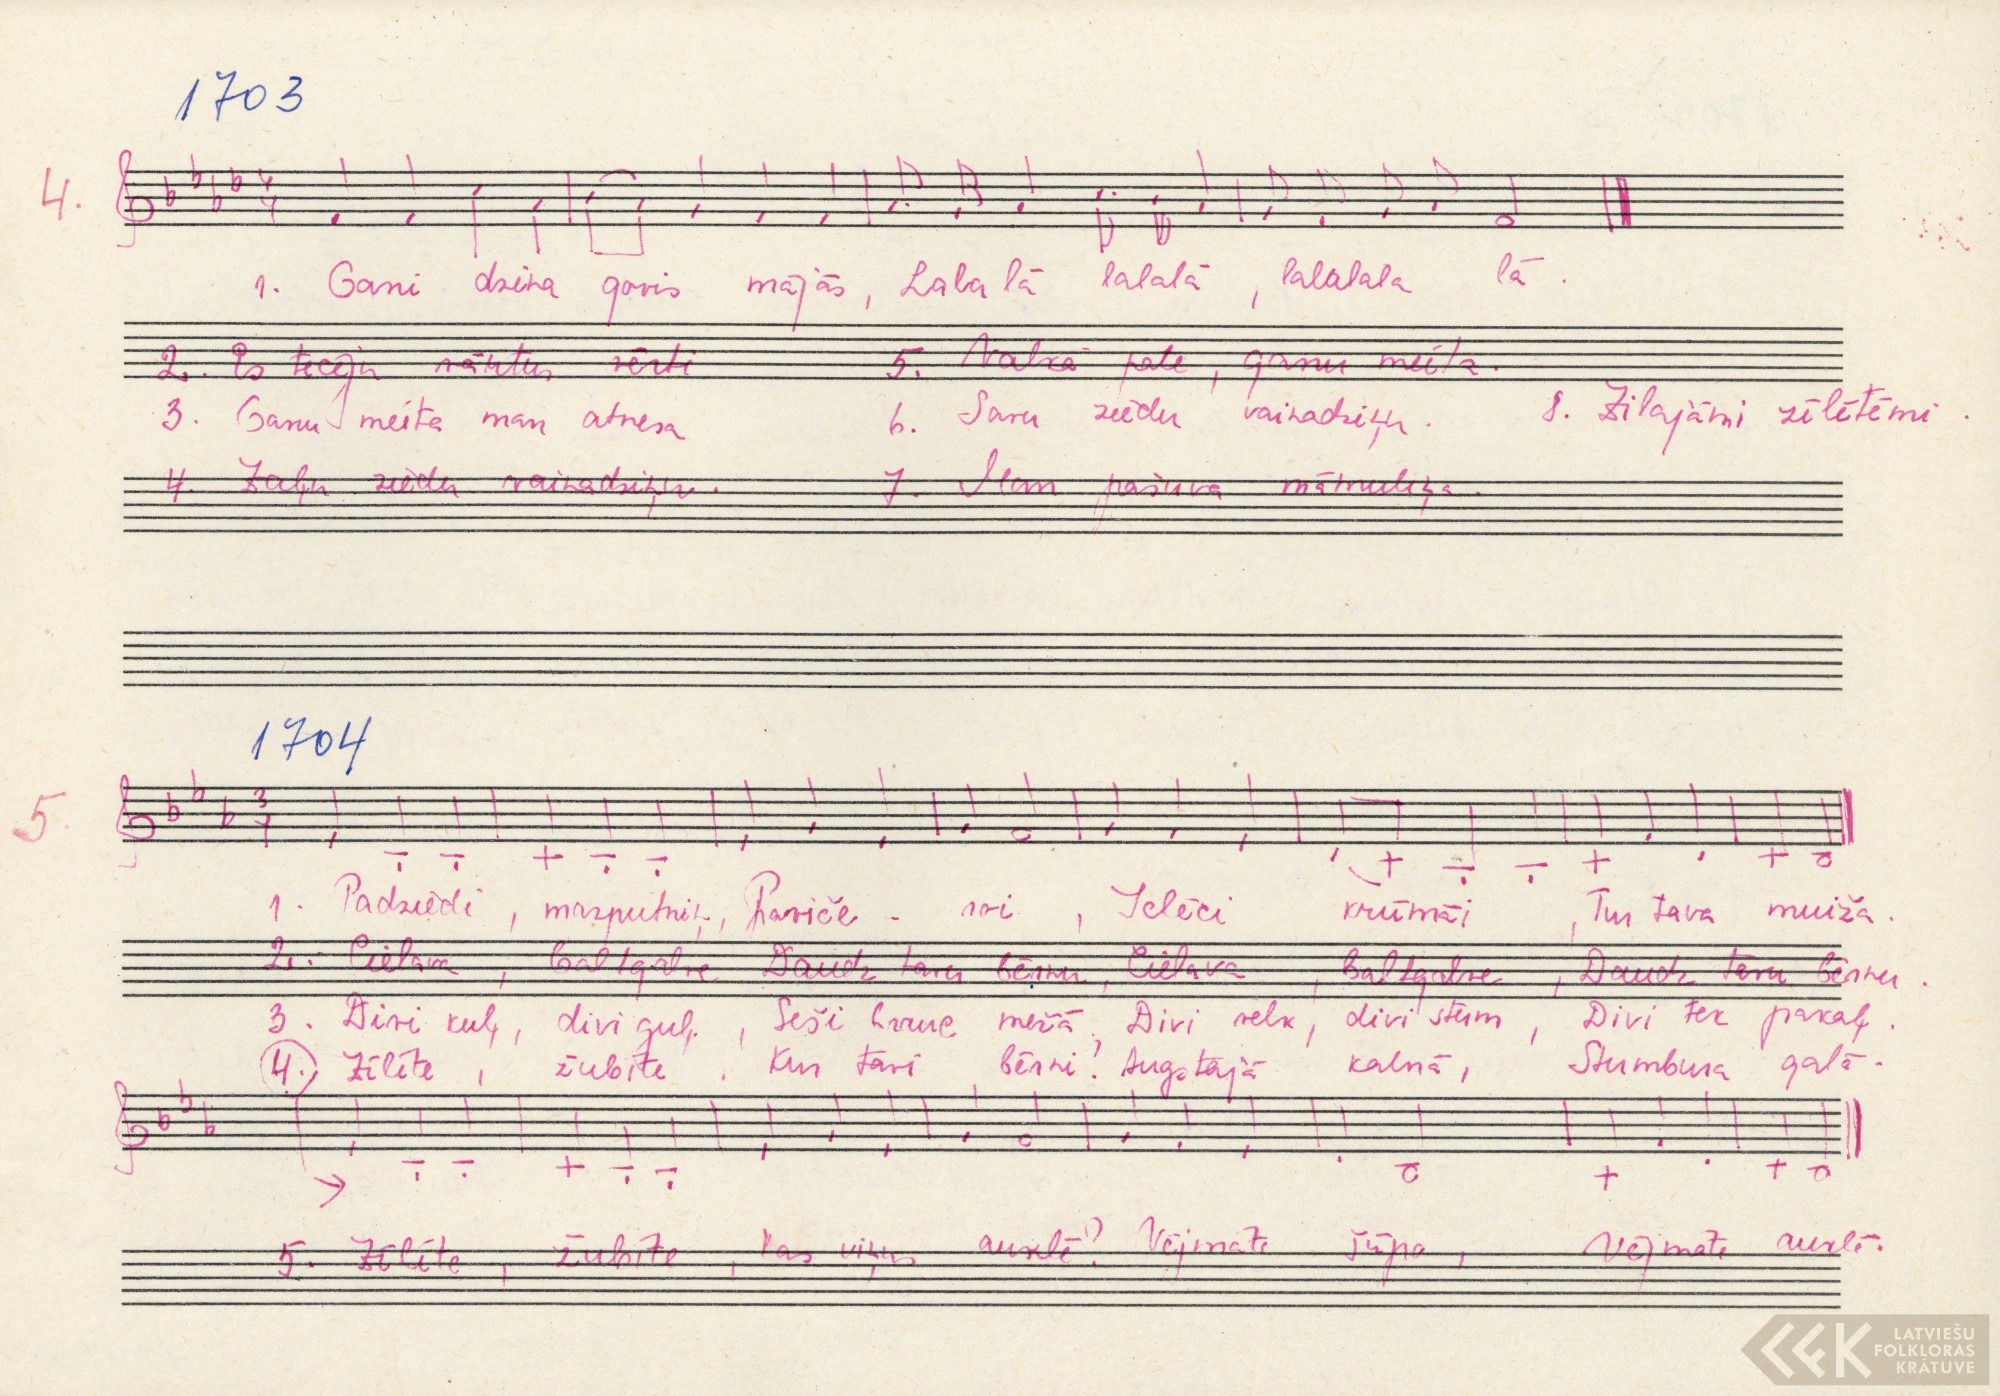 1703
4.
1. Gani dzina govis mājās, Lala lā lalalā, lalalala lā.
2. Es tecēju vārtus vērti 5. Valkā pate, ganu meita.
3. Ganu meita man atnesa 6. Savu ziedu vainadziņu. 8. Zilajāmi zīlītēmi.
4. Zaļu ziedu vainadziņu. 7. Man pašuva māmuliņa.
1704
5.
1. Padziedi, mazputniņ, - Ielēci krūmāi, Tur tava muiža.
2. Cielava, baltgalve Daudz tavu bērnu, Cielava, baltgalve, Daudz tavu bērnu.
3. Divi kuļ, divi guļ, Seši brauc mežā, Divi velk, divi stum, Divi tek pakaļ.
4. Zīlīte, žubīte, Kur tavi bērni? Augstajā kalnā, Stumbura galā.
5. Zīlīte, žubīte, kas viņus auklē? Vējmāte šūpo, Vējmāte auklē.
LATVIEŠU
FOLKLORAS
KRĀTUVE